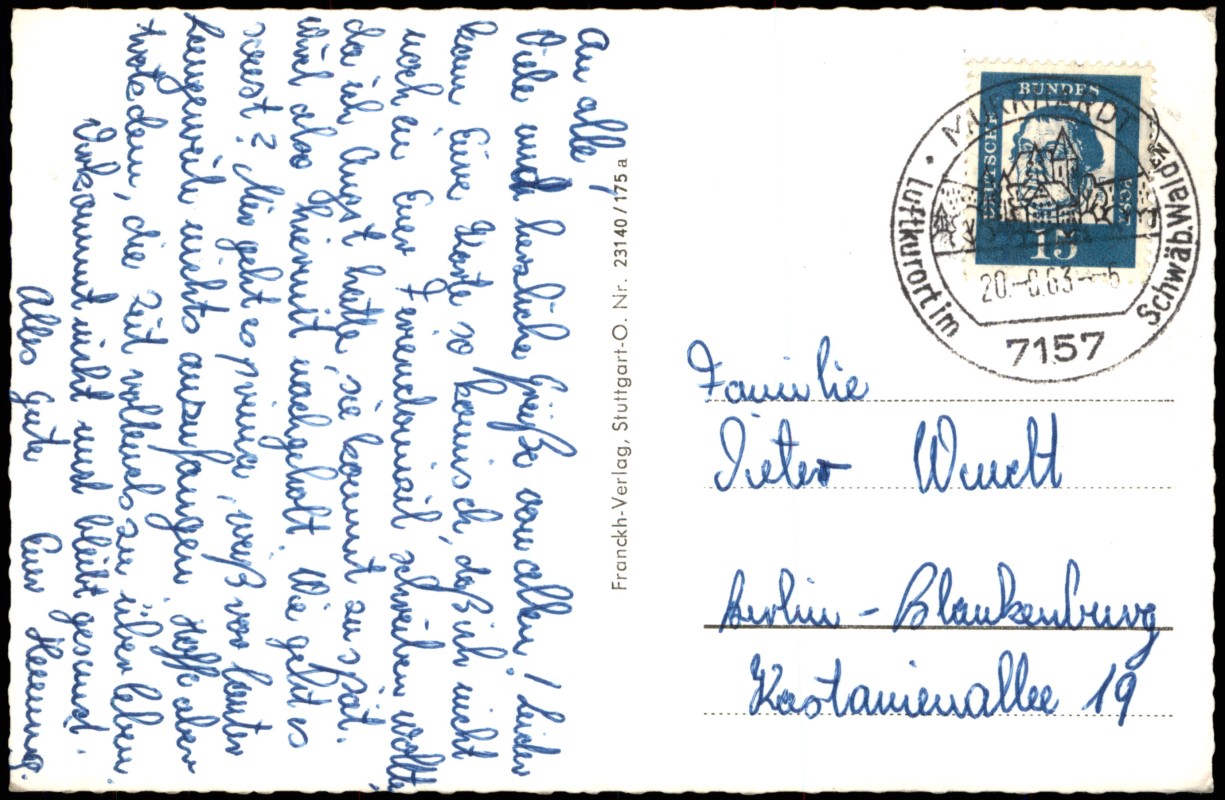 An alle,
Viele und herzliche Grüße von allen! Leider
kam Eure Karte so komisch, daß ich nicht
noch in Euer Feriendomizil schreiben wollte,
da ich Angst hatte, sie kommt zu spät.
Wird also hiermit nachgeholt. Wie geht es
sonst? Mir geht es prima, weiß vor lauter
Langerweile nichts anzufangen. Hoffe aber
trotzdem, die Zeit vollends zu überleben.
Verkommt nicht und bleibt gesund.
Alles Gute Euer Henning.
Franckh-Verlag, Stuttgart-O. Nr. 23140/175 a
DEUTSCHE BUNDESPOST
15
MURRHARDT
Luftkurort im Schwäb. Wald
20.-8.63--6
7157
Familie
Dieter Wendt
Berlin - Blankenburg
Kastanienallee 19